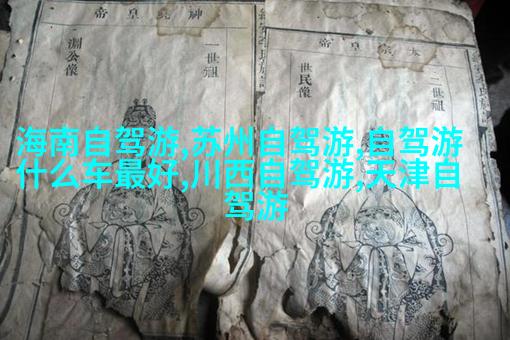 海南自驾游,苏州自驾游,自驾游
什么车最好,川西自驾游,天津自
驾游
二世祖
世民像
神堯皇帝
一世祖
淵公像